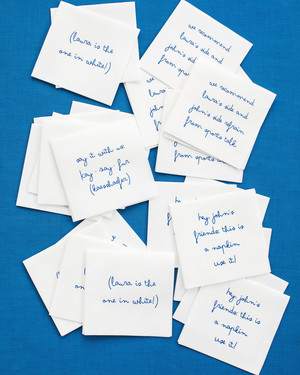 (laura is the
one in white!)
we recommend
laura's side and
john's side refrain
from sports talk
we recommend
laura's side and
john's side refrain
from sports talk
say it with us
kay say fur
(kaeshaefer)
hey john's
friends this is
a napkin
use it!
(laura is the
one in white!)
hey john's
friends this is
a napkin
use it!